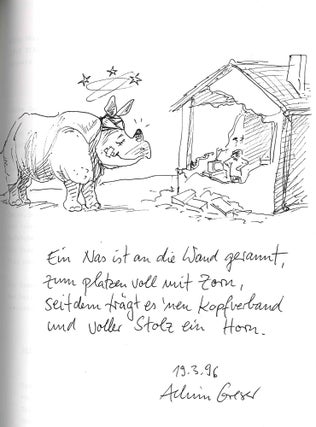 Ein Nas ist an die Wand gerannt,
zum platzen voll mit Zorn,
seitdem trägt es 'nen Kopfverband
und voller Stolz ein Horn.
19.3.96
Achim Greser